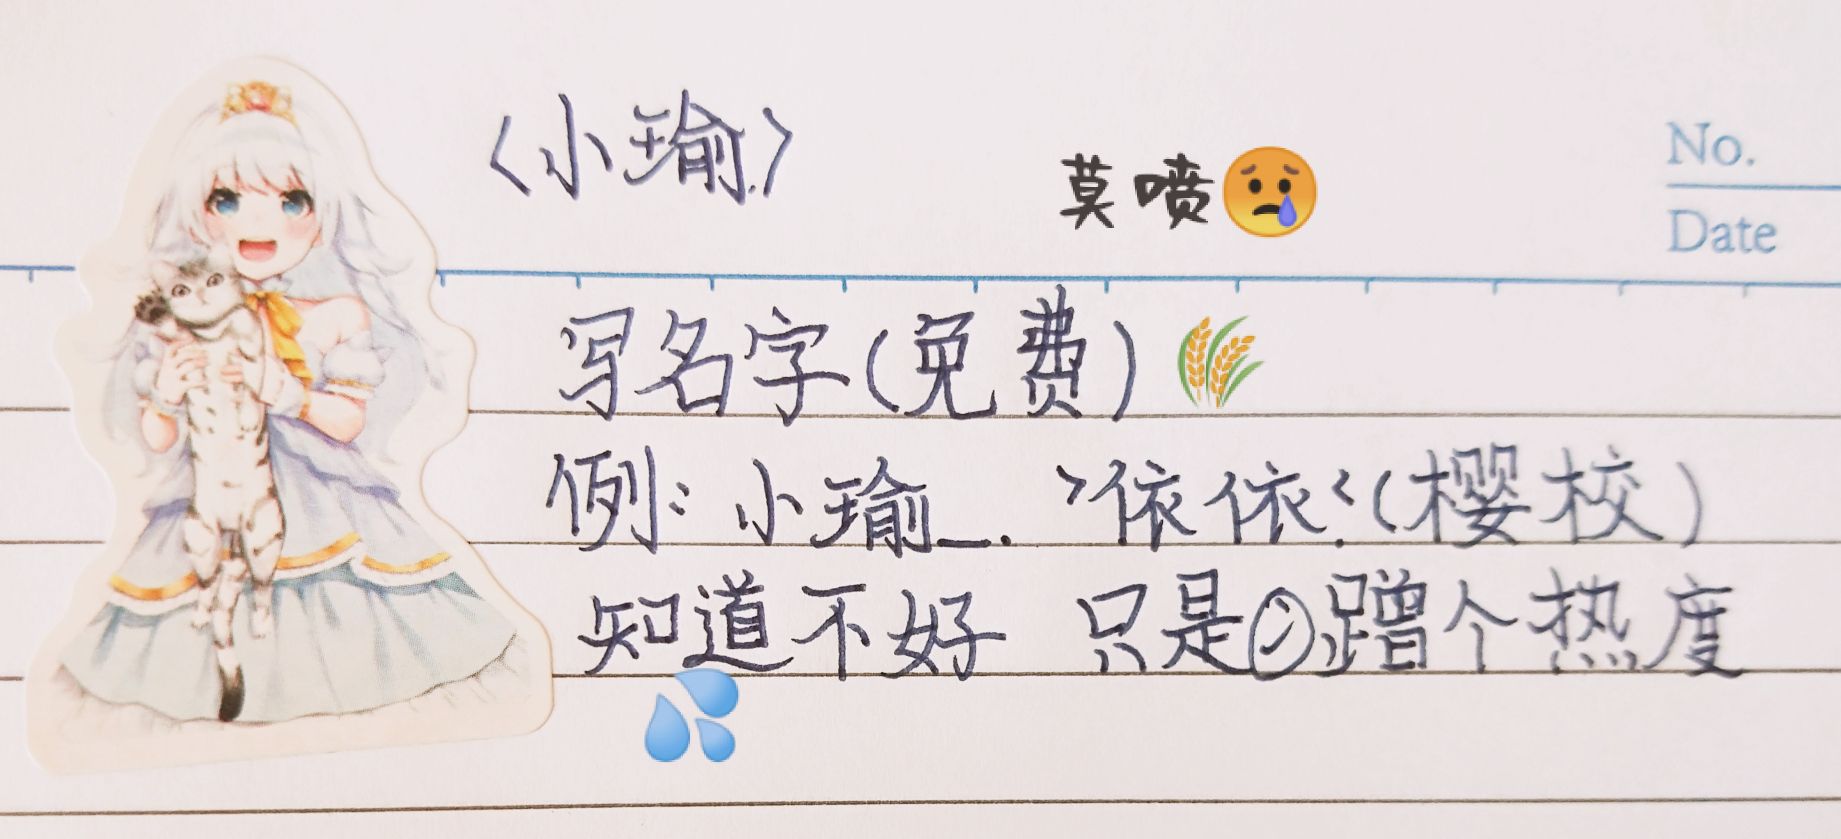 〈小瑜.〉
莫喷😢
No.
Date
写名字(免费)🌾
例:小瑜_. >依依.<(樱校)
知道不好 只是㋡蹭个热度
💦